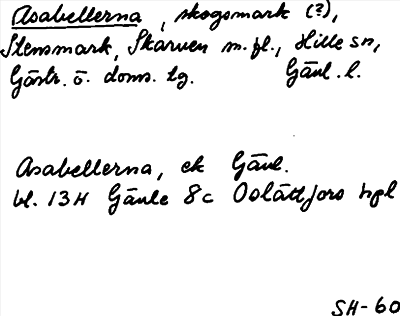 Asabellerna, skogsmark (?),
Stensmark, Skarven m.fl., Hille sn,
Gästr. ö. doms. tg. Gävl. l.
Asabellerna, ek Gävl.
bl. 13H Gävle 8c Oslättfors hpl
SH-60